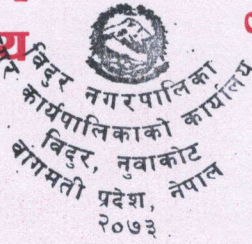 विदुर नगरपालिका
कार्यपालिकाको कार्यालय
विदुर, नुवाकोट
वागमती प्रदेश, नेपाल
२०७३